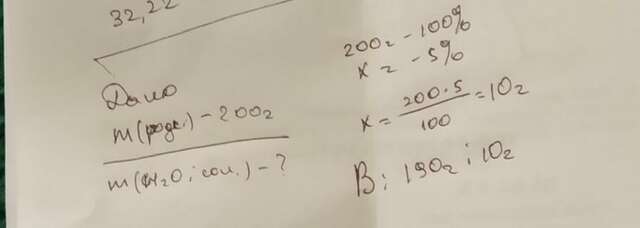 32,22
Дано
m(розч.) - 200г
m(H2O; сол.) - ?
200г - 100%
x г - 5%
x = 200·5 / 100 = 10г
В: 190г; 10г